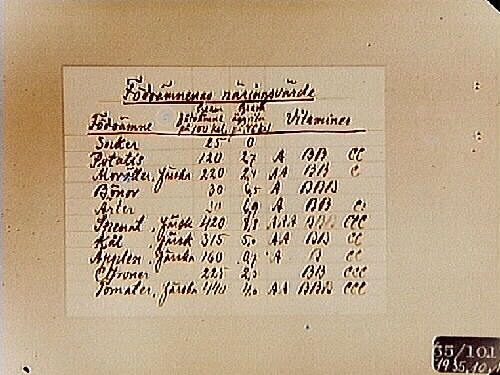 Födoämnenas näringsvärde
Födoämne Vitaminer
Socker 25 0
Potatis 120 2,7 A BB CC
Morötter, färska 220 2,4 AA BB C
Bönor 30 6,5 A BBB
Ärter 30 A BB C
Spenat, färsk 420 AAA BBB CCC
Kål, färsk 315 5,0 AA BB CC
Applen, färska 160 0,7 A B CC
Citroner 225 2,5 BB CCC
Tomater, färska 440 4,0 AA BBB CCC
35/101
1935.10.